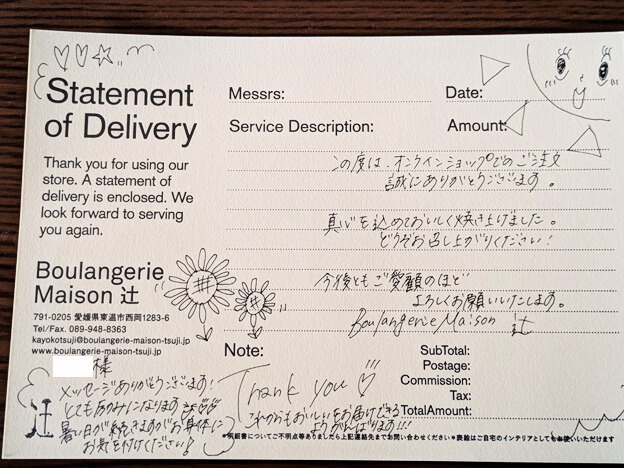 Statement
of Delivery
Thank you for using our
store. A statement of
delivery is enclosed. We
look forward to serving
you again.
Boulangerie
Maison 辻
791-0205 愛媛県東温市西岡1283-6
Tel/Fax. 089-948-8363
kayokotsuji@boulangerie-maison-tsuji.jp
www.boulangerie-maison-tsuji.jp
Messrs:
Date:
Service Description:
Amount:
この度は、オンラインショップでのご注文
誠にありがとうございます。
真心を込めておいしく焼き上げました。
どうぞお召し上がりください!
今後ともご愛顧のほど
よろしくお願いいたします。
Boulangerie Maison 辻
Note:
SubTotal:
Postage:
Commission:
Tax:
TotalAmount:
様
メッセージありがとうございます!
とても励みになります
暑い日が続きますがお身体に
お気を付けください!
辻
Thank you
これからもおいしいをお届けできる
ようがんばります!!!
*明細書についてご不明点等ありましたら上記連絡先までお問い合わせください*表絵はご自宅のインテリアとしてもお使いいただけます